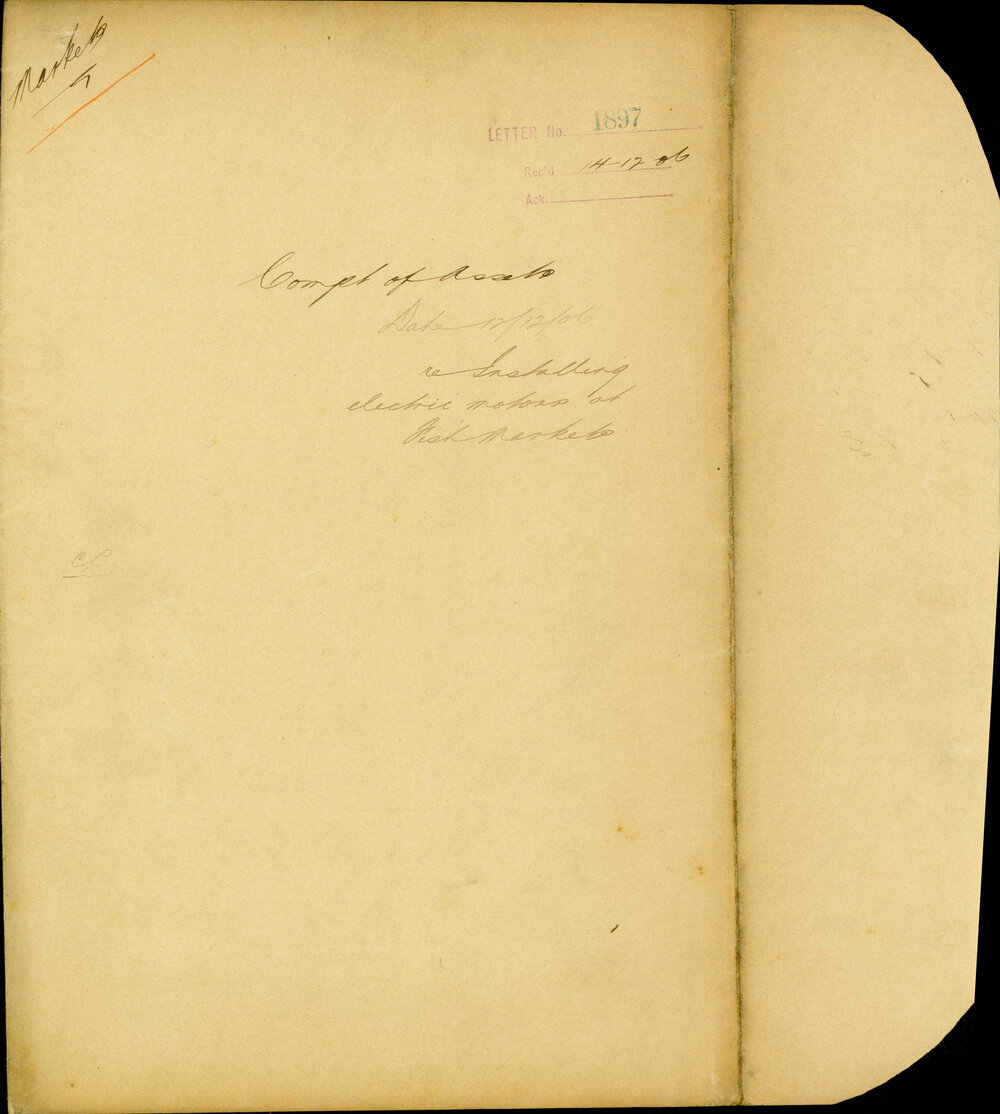 Markets
LETTER No. 1897
Rec'd 14-12-06
Ack.
Compt of Assets
Date 12/12/06
re Installing
electric motors at
Fish Markets